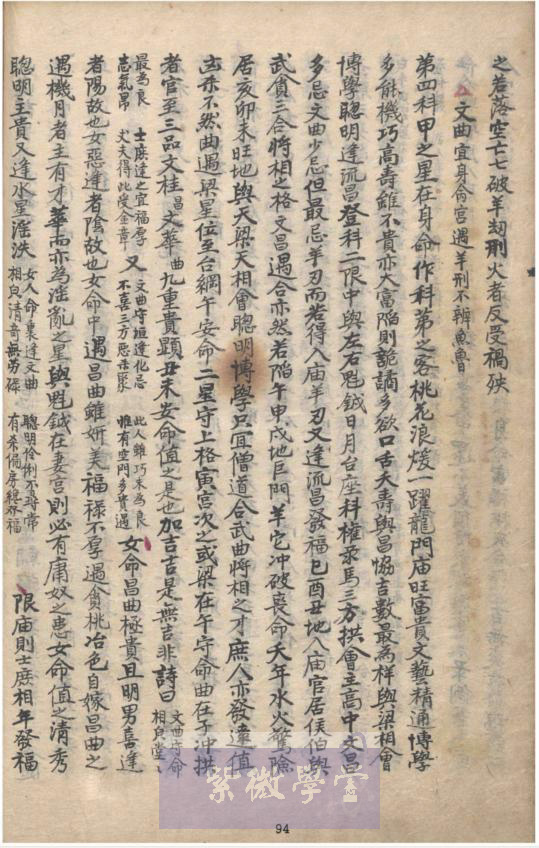 之若落空亡七破羊劫刑火者反受禍殃
文曲宜身命宮遇羊刑不辨魚魯
第四科甲之星在身命作科第之客桃花浪煖一躍龍門庙旺富貴文藝精通博學
多能機巧高壽雖不貴亦大富陷則詭譎多欲口舌夭壽與昌恊吉數最為祥與梁相會
博學聰明逢流昌登科二限中與左右魁鉞日月台座科權录馬三方拱會主高中文昌
多忌文曲少忌但最忌羊刃而若得入庙羊刃又逢流昌發福巳酉丑地入庙官居侯伯與
武貪三合將相之格文昌遇合亦然若陷午甲戌地巨門羊它冲破喪命夭年水火驚險
居亥卯未旺地與天梁天相會聰明博學只宜僧道合武曲將相之才庶人亦發達值
凶杀不然曲遇梁星位至台綱午安命二星守上格寅宮次之或梁在午守命曲在子冲拱
者官至三品文桂昌文華曲九重貴顯丑未安命值之是也加吉吉是無吉非詩曰文曲守命相良堂
最為良志氣昂士庶逢之宜福厚丈夫得此受金章又文曲守垣逢化忌不喜三方惡杀聚此人雖巧未為良惟有空門多貴遇女命昌曲極貴且明男喜逢
者陽故也女惡逢者陰故也女命中遇昌曲雖妍美福祿不厚遇貪桃冶色自嫁昌曲之
遇機月者主有才華而亦為淫亂之星與魁鉞在妻宮則必有庸奴之患女命值之清秀
聰明主貴又逢水星淫泆女人命裏逢文曲相良清奇無勞碌聰明伶俐不尋常有杀偏房總發福限庙則士庶相年發福
紫微學堂
94